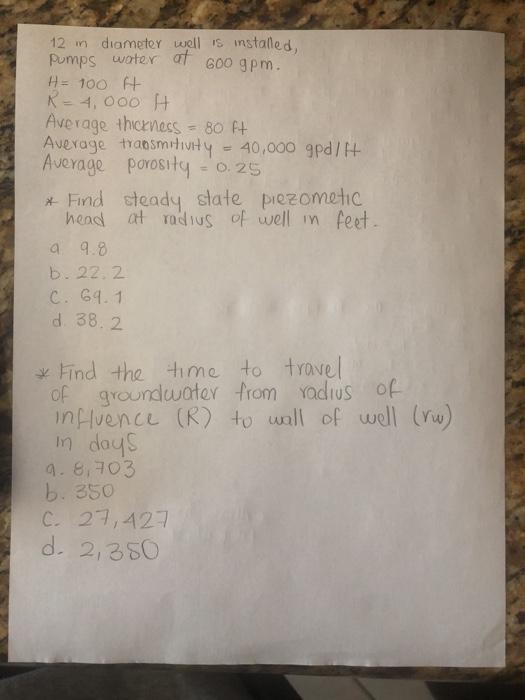 12 in diameter well is installed,
pumps water at 600 gpm.
H = 100 ft
R = 4,000 ft
Average thickness = 80 ft
Average transmitivity = 40,000 gpd/ft
Average porosity = 0.25
* Find steady state piezometic
head at radius of well in feet.
a 9.8
b. 22.2
c. 69.1
d. 38.2
* Find the time to travel
of groundwater from radius of
influence (R) to wall of well (rw)
in days
a. 8,703
b. 350
c. 27,427
d. 2,350